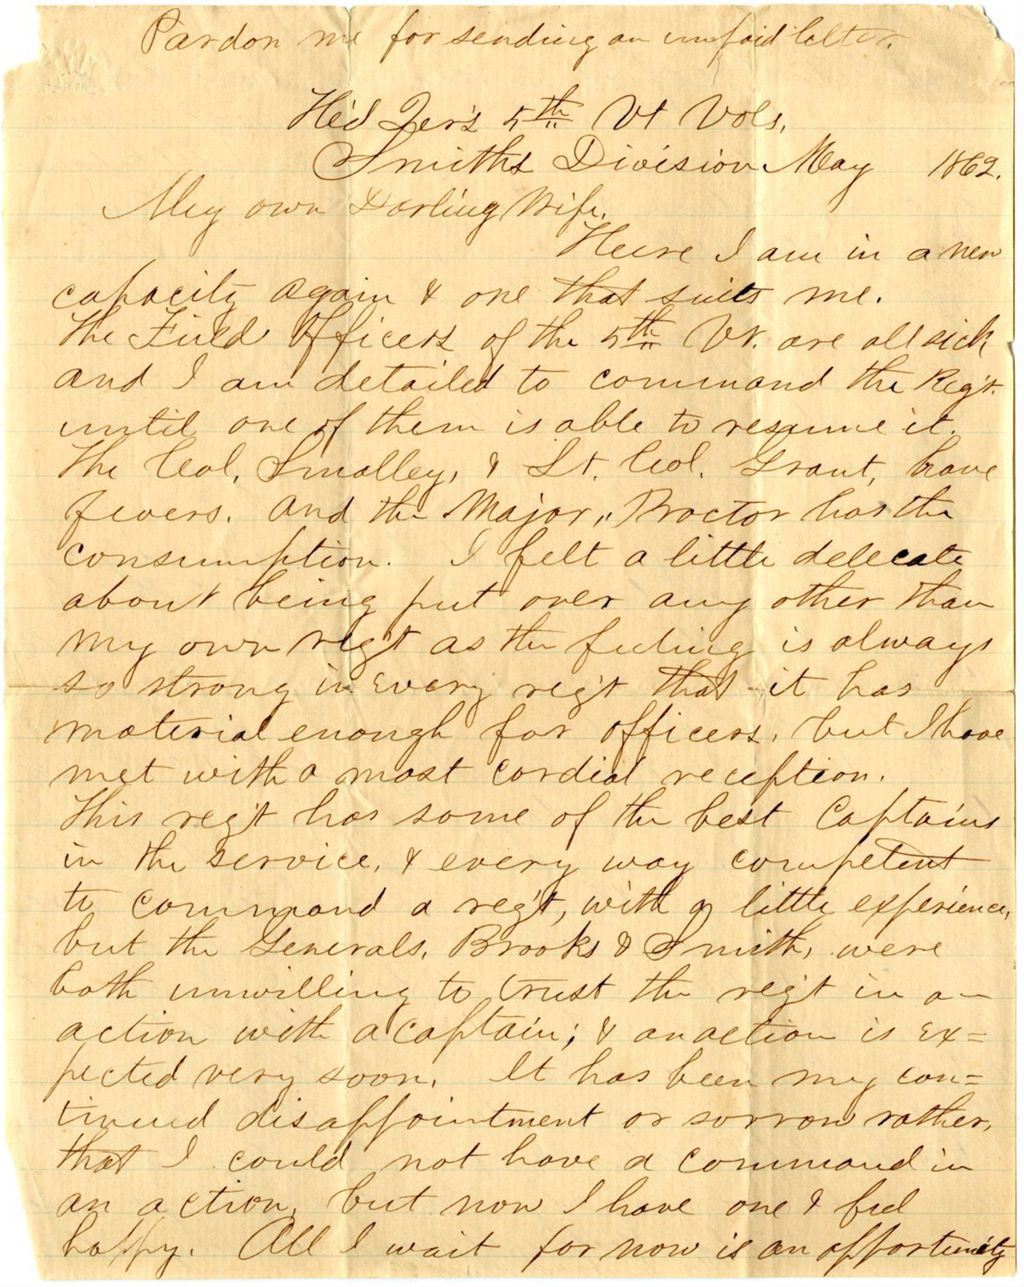 Pardon me for sending an unpaid letter.
Hd Qer's 5th Vt Vols.
Smiths Division May 1862.
My own Darling Wife.
Here I am in a new
capacity again & one that suits me.
The Field Officers of the 5th Vt. are all sick
and I am detailed to command the Reg't.
until one of them is able to resume it.
The Col, Smalley, & Lt. Col. Grant, have
fevers. And the Major, Proctor has the
consumption. I felt a little delecate
about being put over any other than
my own reg't as the feeling is always
so strong in every reg't that it has
material enough for officers, but I have
met with a most cordial reception.
This reg't has some of the best Captains
in the service, & every way competent
to command a reg't, with a little experience,
but the Generals, Brooks & Smith, were
both unwilling to trust the reg't in an
action with a captain; & an action is ex=
pected very soon. It has been my con=
tinued disappointment or sorrow rather,
that I could not have a command in
an action, but now I have one & feel
happy. All I wait for now is an opportunity